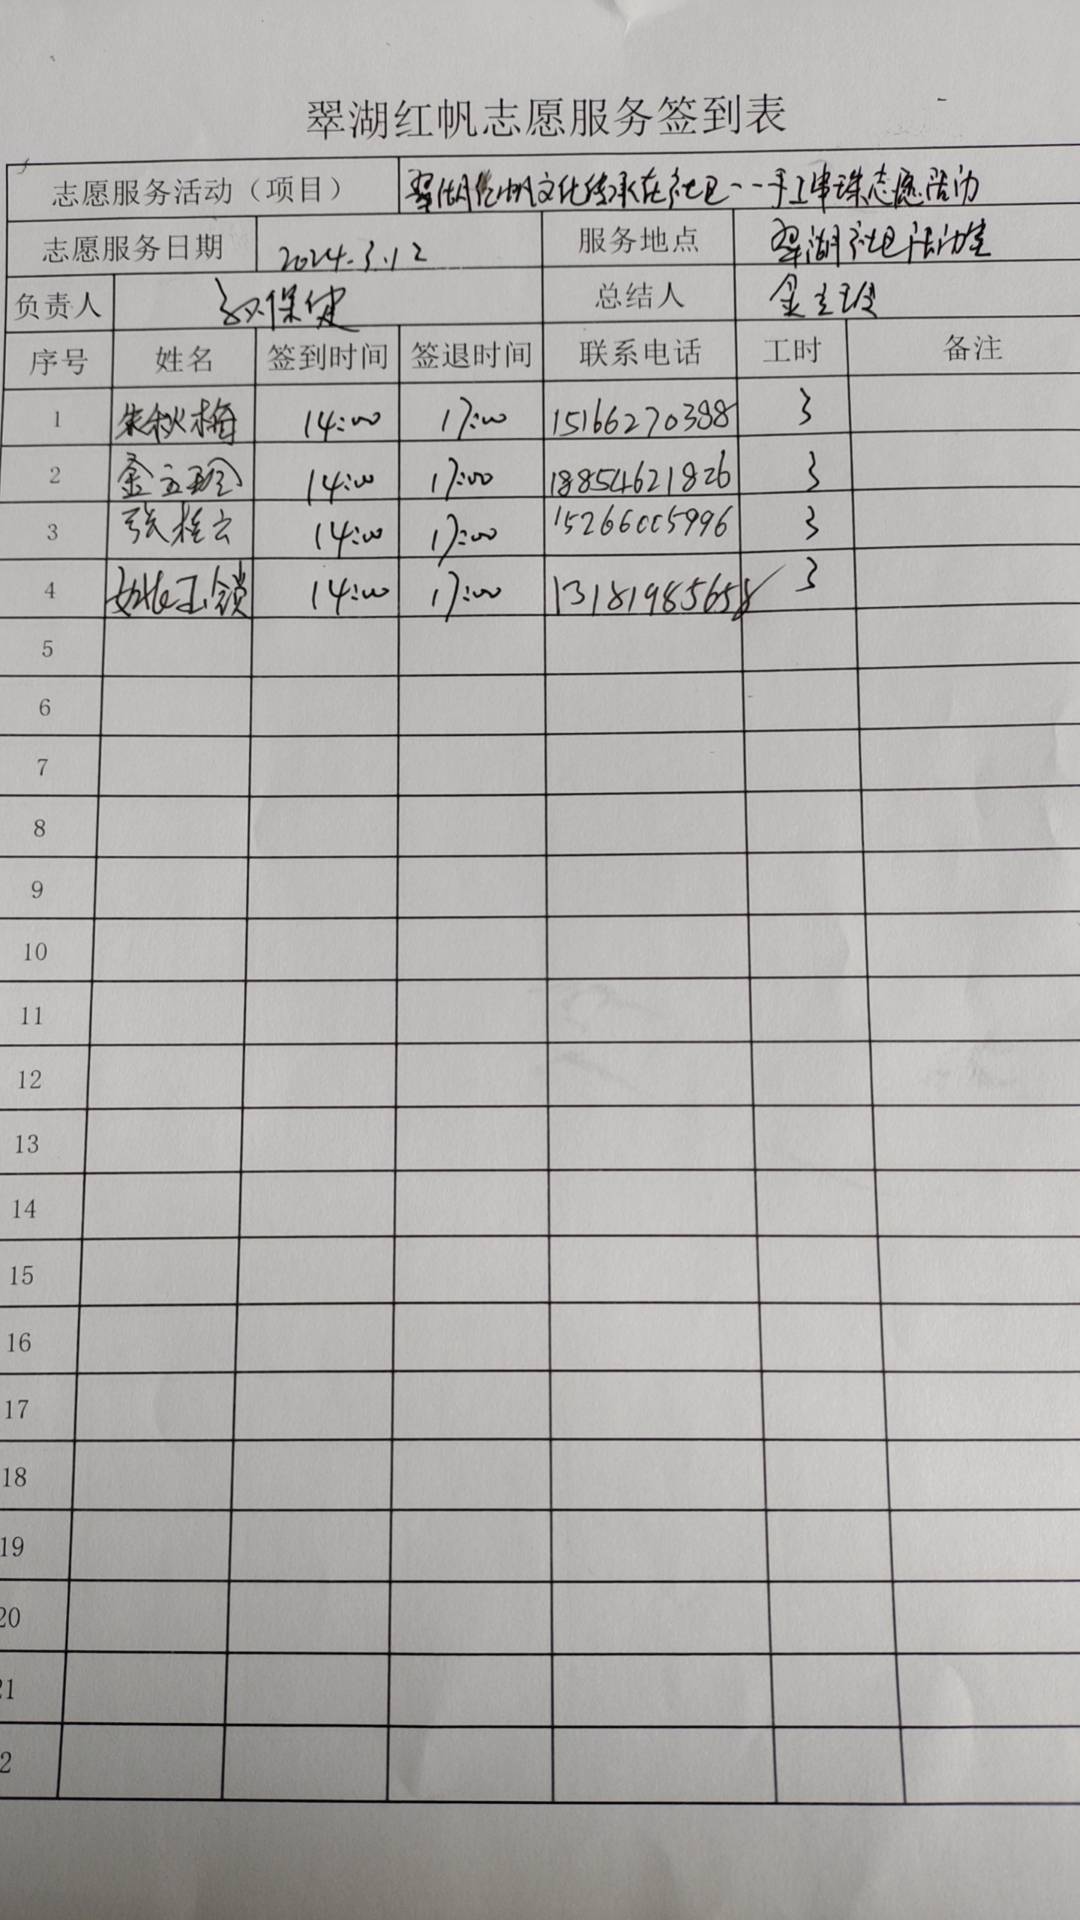 翠湖红帆志愿服务签到表
志愿服务活动（项目） 翠湖红帆文化传承在社区--手工串珠志愿活动
志愿服务日期 2024.3.12 服务地点 翠湖社区活动室
负责人 保健 总结人 金
序号 姓名 签到时间 签退时间 联系电话 工时 备注
1 朱秋梅 14:00 17:00 15166270388 3
2 金玉玲 14:00 17:00 18854621826 3
3 张桂云 14:00 17:00 15266005996 3
4 姚玉锁 14:00 17:00 13181985658 3
5
6
7
8
9
10
11
12
13
14
15
16
17
18
19
20
21
2